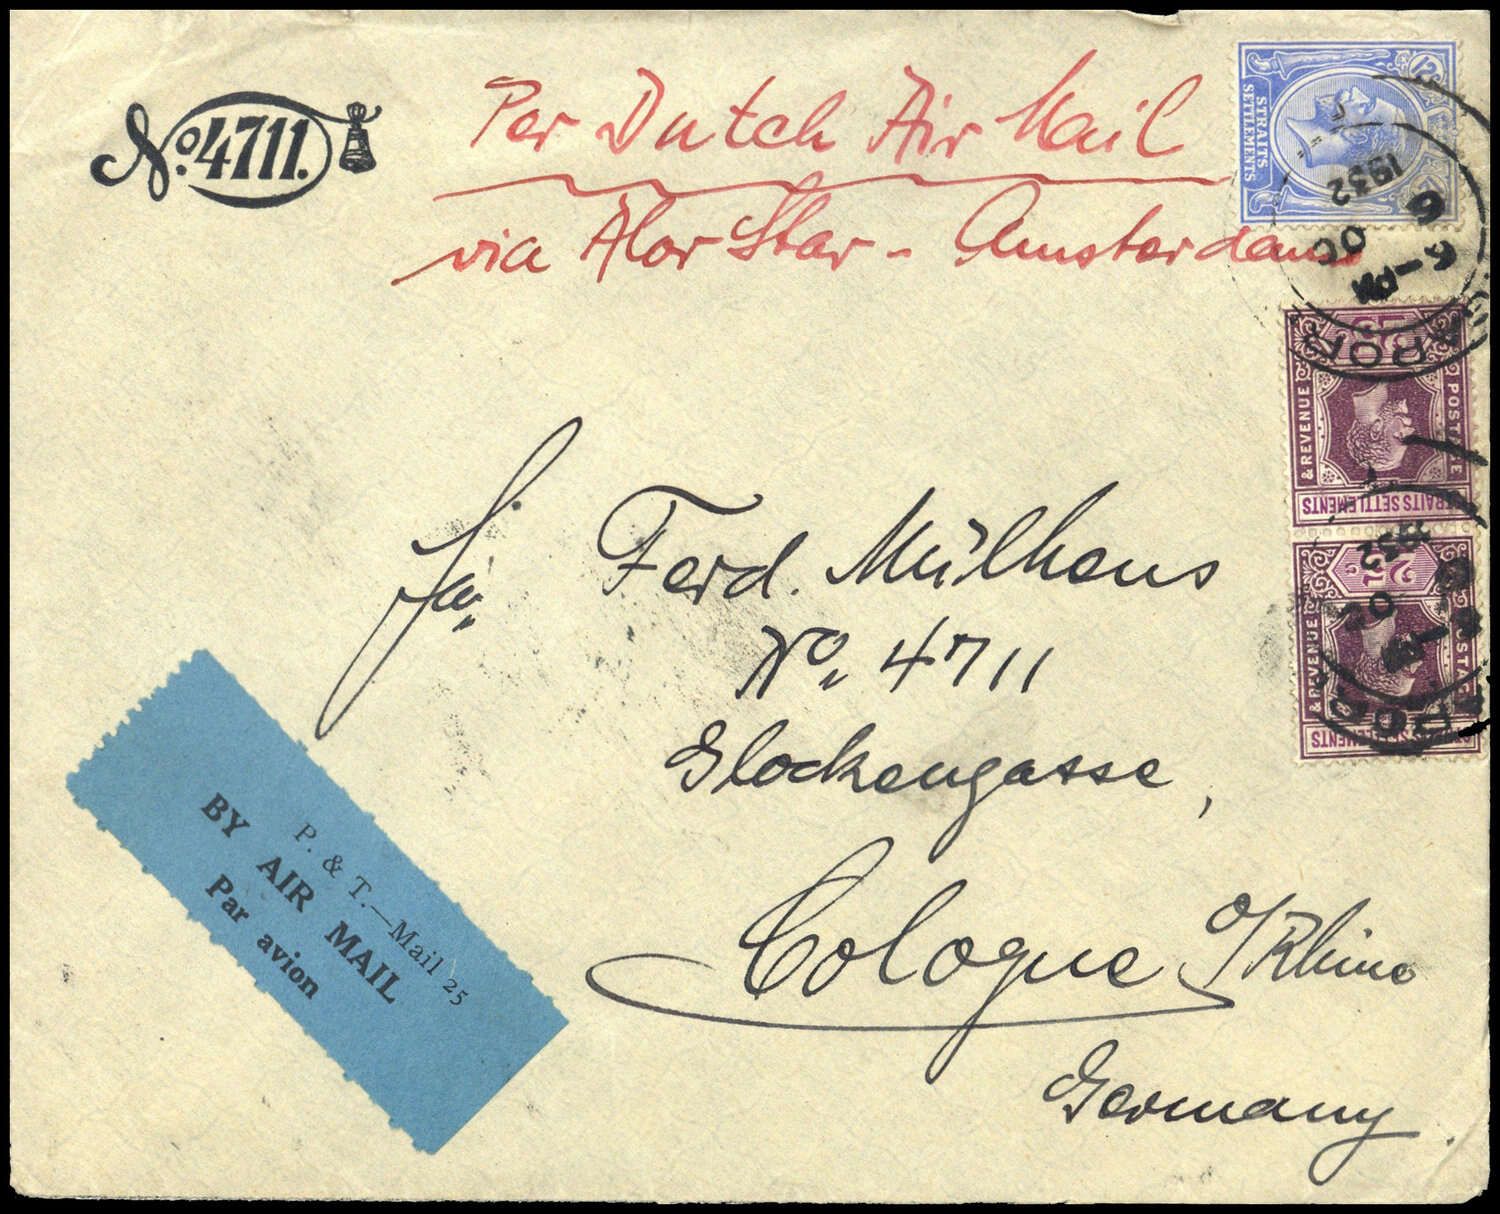 No. 4711.
Per Dutch Air Mail
via Alor Star - Amsterdam
12
STRAITS
SETTLEMENTS
1932
6
OC
6-PM
POSTAGE
& REVENUE
STRAITS SETTLEMENTS
POSTAGE
& REVENUE
SETTLEMENTS
Fa. Ferd. Mülhens
No. 4711
Glockengasse,
Cologne o/Rhine
Germany.
P. & T.—Mail 25
BY AIR MAIL
Par avion